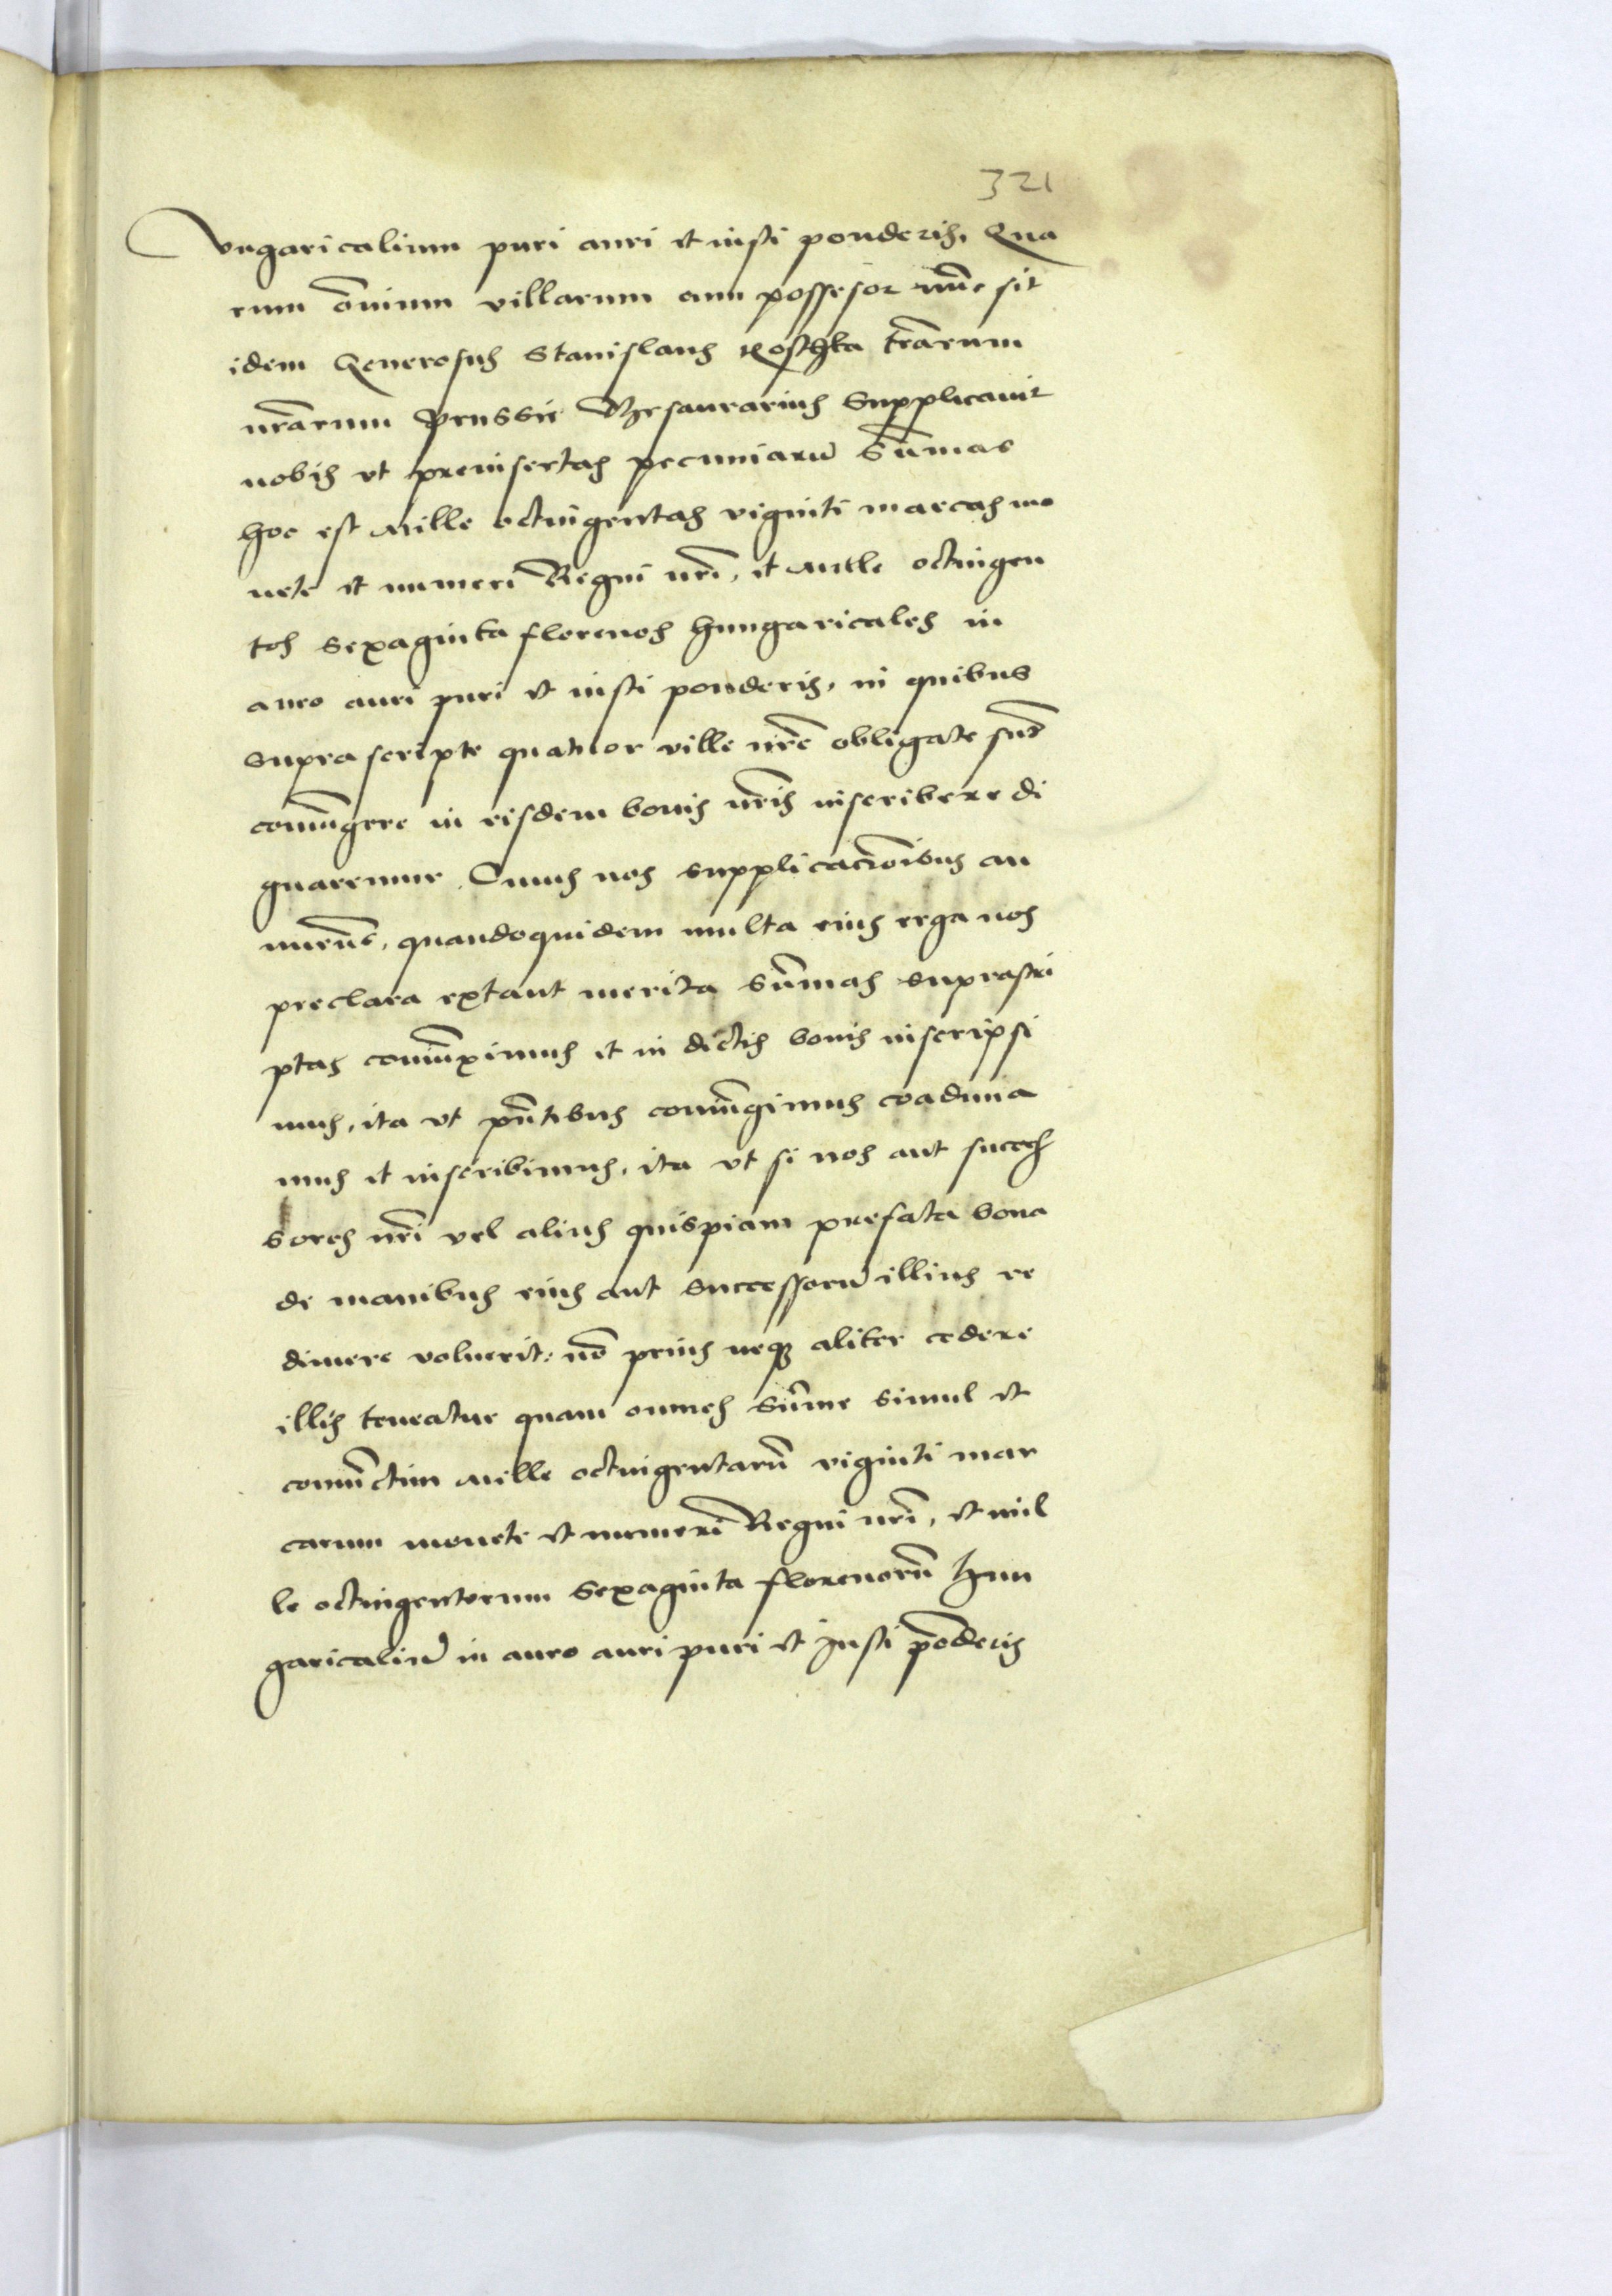 321
Vngaricalium puri auri et iusti ponderis, Qua
rum o͞mium villarum cum possesor nu͞c sit
idem Generosus Stanislaus Koschka tr͞arum
nr͞arum Prussie Thesaurarius Supplicauit
nobis vt preinsertas pecuniaru͞ Su͞mas
hoc est Mille octingentas viginti marcas mo
nete et numeri Regni nr͞i, et Mille octingen
tos Sexaginta florenos hungaricales in
auro auri puri et iusti ponderis, in quibus
supra scripte quatuor ville nr͞e obligate su͞t
coniu͞gere in eisdem bonis nr͞is inscribere di
gnaremur. Cuius nos supplicac͞ionibus an
nue͞tes, quandoquidem multa eius erga nos
preclara extant merita Su͞mas suprascri
ptas coniu͞ximus et in dictis bonis inscripsi
mus, ita vt pn͞tibus coniu͞gimus coaduna
mus et inscribimus, ita vt si nos aut succes
sores nr͞i vel alius quispiam prefata bona
de manibus eius aut successoru͞ illius re
dimere voluerit: no͞ prius neq₃ aliter cedere
illis teneatur quam omnes Su͞me simul et
coniu͞ctim Mille octingentaru͞ viginti mar
carum monete et numeri Regni nr͞i, et mil
le octingentorum Sexaginta florenoru͞ Hun
garicaliu͞ in auro auri puri et Justi po͞deris